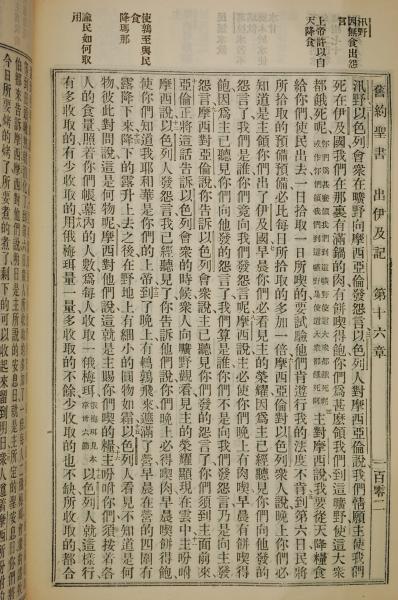 汛野四無食出怨言
上帝許以自天降食
使鶉至與民食降瑪那
諭民如何取用
舊約聖書 出伊及記 第十六章 百零二
汛野以色列會衆在曠野向摩西亞倫發怨言以色列人對摩西亞倫說我們情願主使我們
死在伊及國我們在那裏有滿鍋的肉有餅喫得飽你們爲甚麽領我們到這曠野使這大衆
都餓死呢 你們爲甚麽領我們到這曠野使這大衆都餓死呢或作你們領我們到這曠野是使這大衆都餓死阿 主對摩西說我要從天降糧食
給你們使民出去一日拾取一日所喫的要試驗他們肯遵行我的法度不肯到第六日民將
所拾取的預備預備必比每日所拾取的多加一倍摩西亞倫對以色列衆人說晚上你們必
知道是主領你們出了伊及國早晨你們必看見主的榮耀因爲主已經聽見你們向他發的
怨言了我們是誰你們竟向我們發怨言呢摩西說主必使你們晚上有肉喫早晨有餅喫得
飽因爲主已聽見你們向他發的怨言了我們算是誰你們不是向我們發怨言乃是向主發
怨言摩西對亞倫說你告訴以色列會衆說主已聽見你們發的怨言了你們須到主面前來
亞倫正將這話告訴以色列會衆的時候衆人向曠野觀看見主的榮耀顯現在雲中主吩咐
摩西說以色列人發怨言我已經聽見了你告訴他們說你們晚上必得喫肉早晨喫餅得飽
使你們知道我耶和華是你們的上帝到了晚上有鵪鶉飛來遮滿了營早晨在營的四圍有
露降下來降下的露升上去之後在野地上有細小的圓物如霜以色列人看見不知道是何
物彼此對問說這是何物呢摩西對他們說這就是主賜你們喫的糧主吩咐你們須按着各
人的食量照着你們帳幕內的人數爲每人收取一俄梅珥 俄梅珥見本章卅六節 以色列人就這樣行
有多收取的有少收取的用俄梅珥量一量多收取的不餘少收取的也不缺所收取的都合
伯都來告訴摩西摩西對他們說明日是
今日所要烤的烤了所要煮的煮了剩下的可以收起來留到明日衆人遵摩西所吩咐